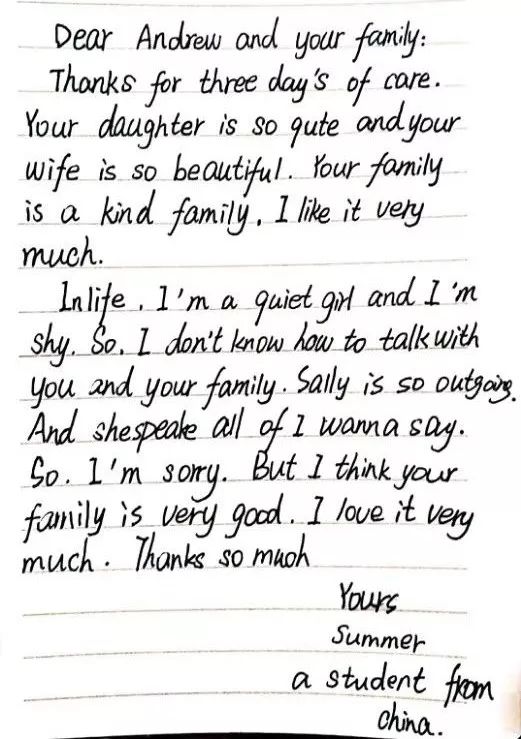 Dear Andrew and your family:
Thanks for three day's of care.
Your daughter is so qute and your
wife is so beautiful. Your family
is a kind family, I like it very
much.
In life, I'm a quiet girl and I'm
shy. So, I don't know how to talk with
you and your family. Sally is so outgoing.
And she speake all of I wanna say.
So. I'm sorry. But I think your
family is very good. I love it very
much. Thanks so much
Yours
Summer
a student from
china.